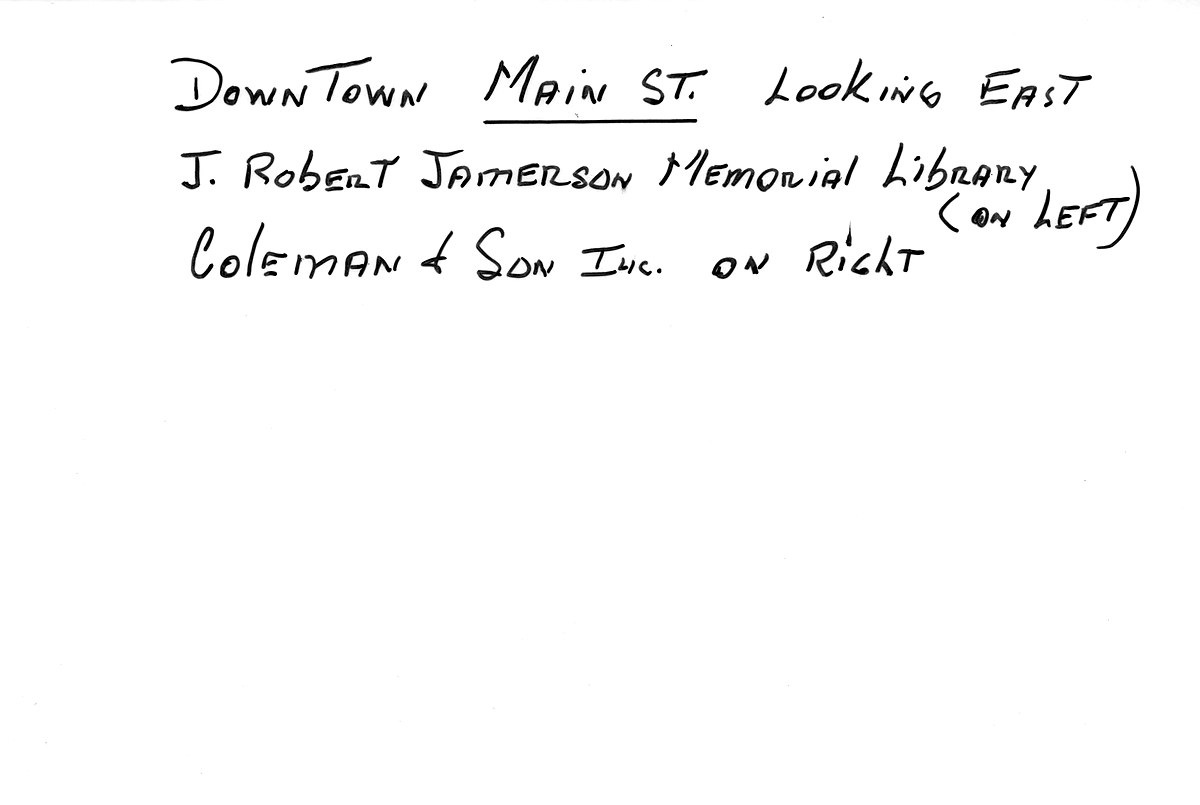 DownTown Main St. Looking East
J. Robert Jamerson Memorial Library
(on Left)
Coleman & Son Inc. on Right